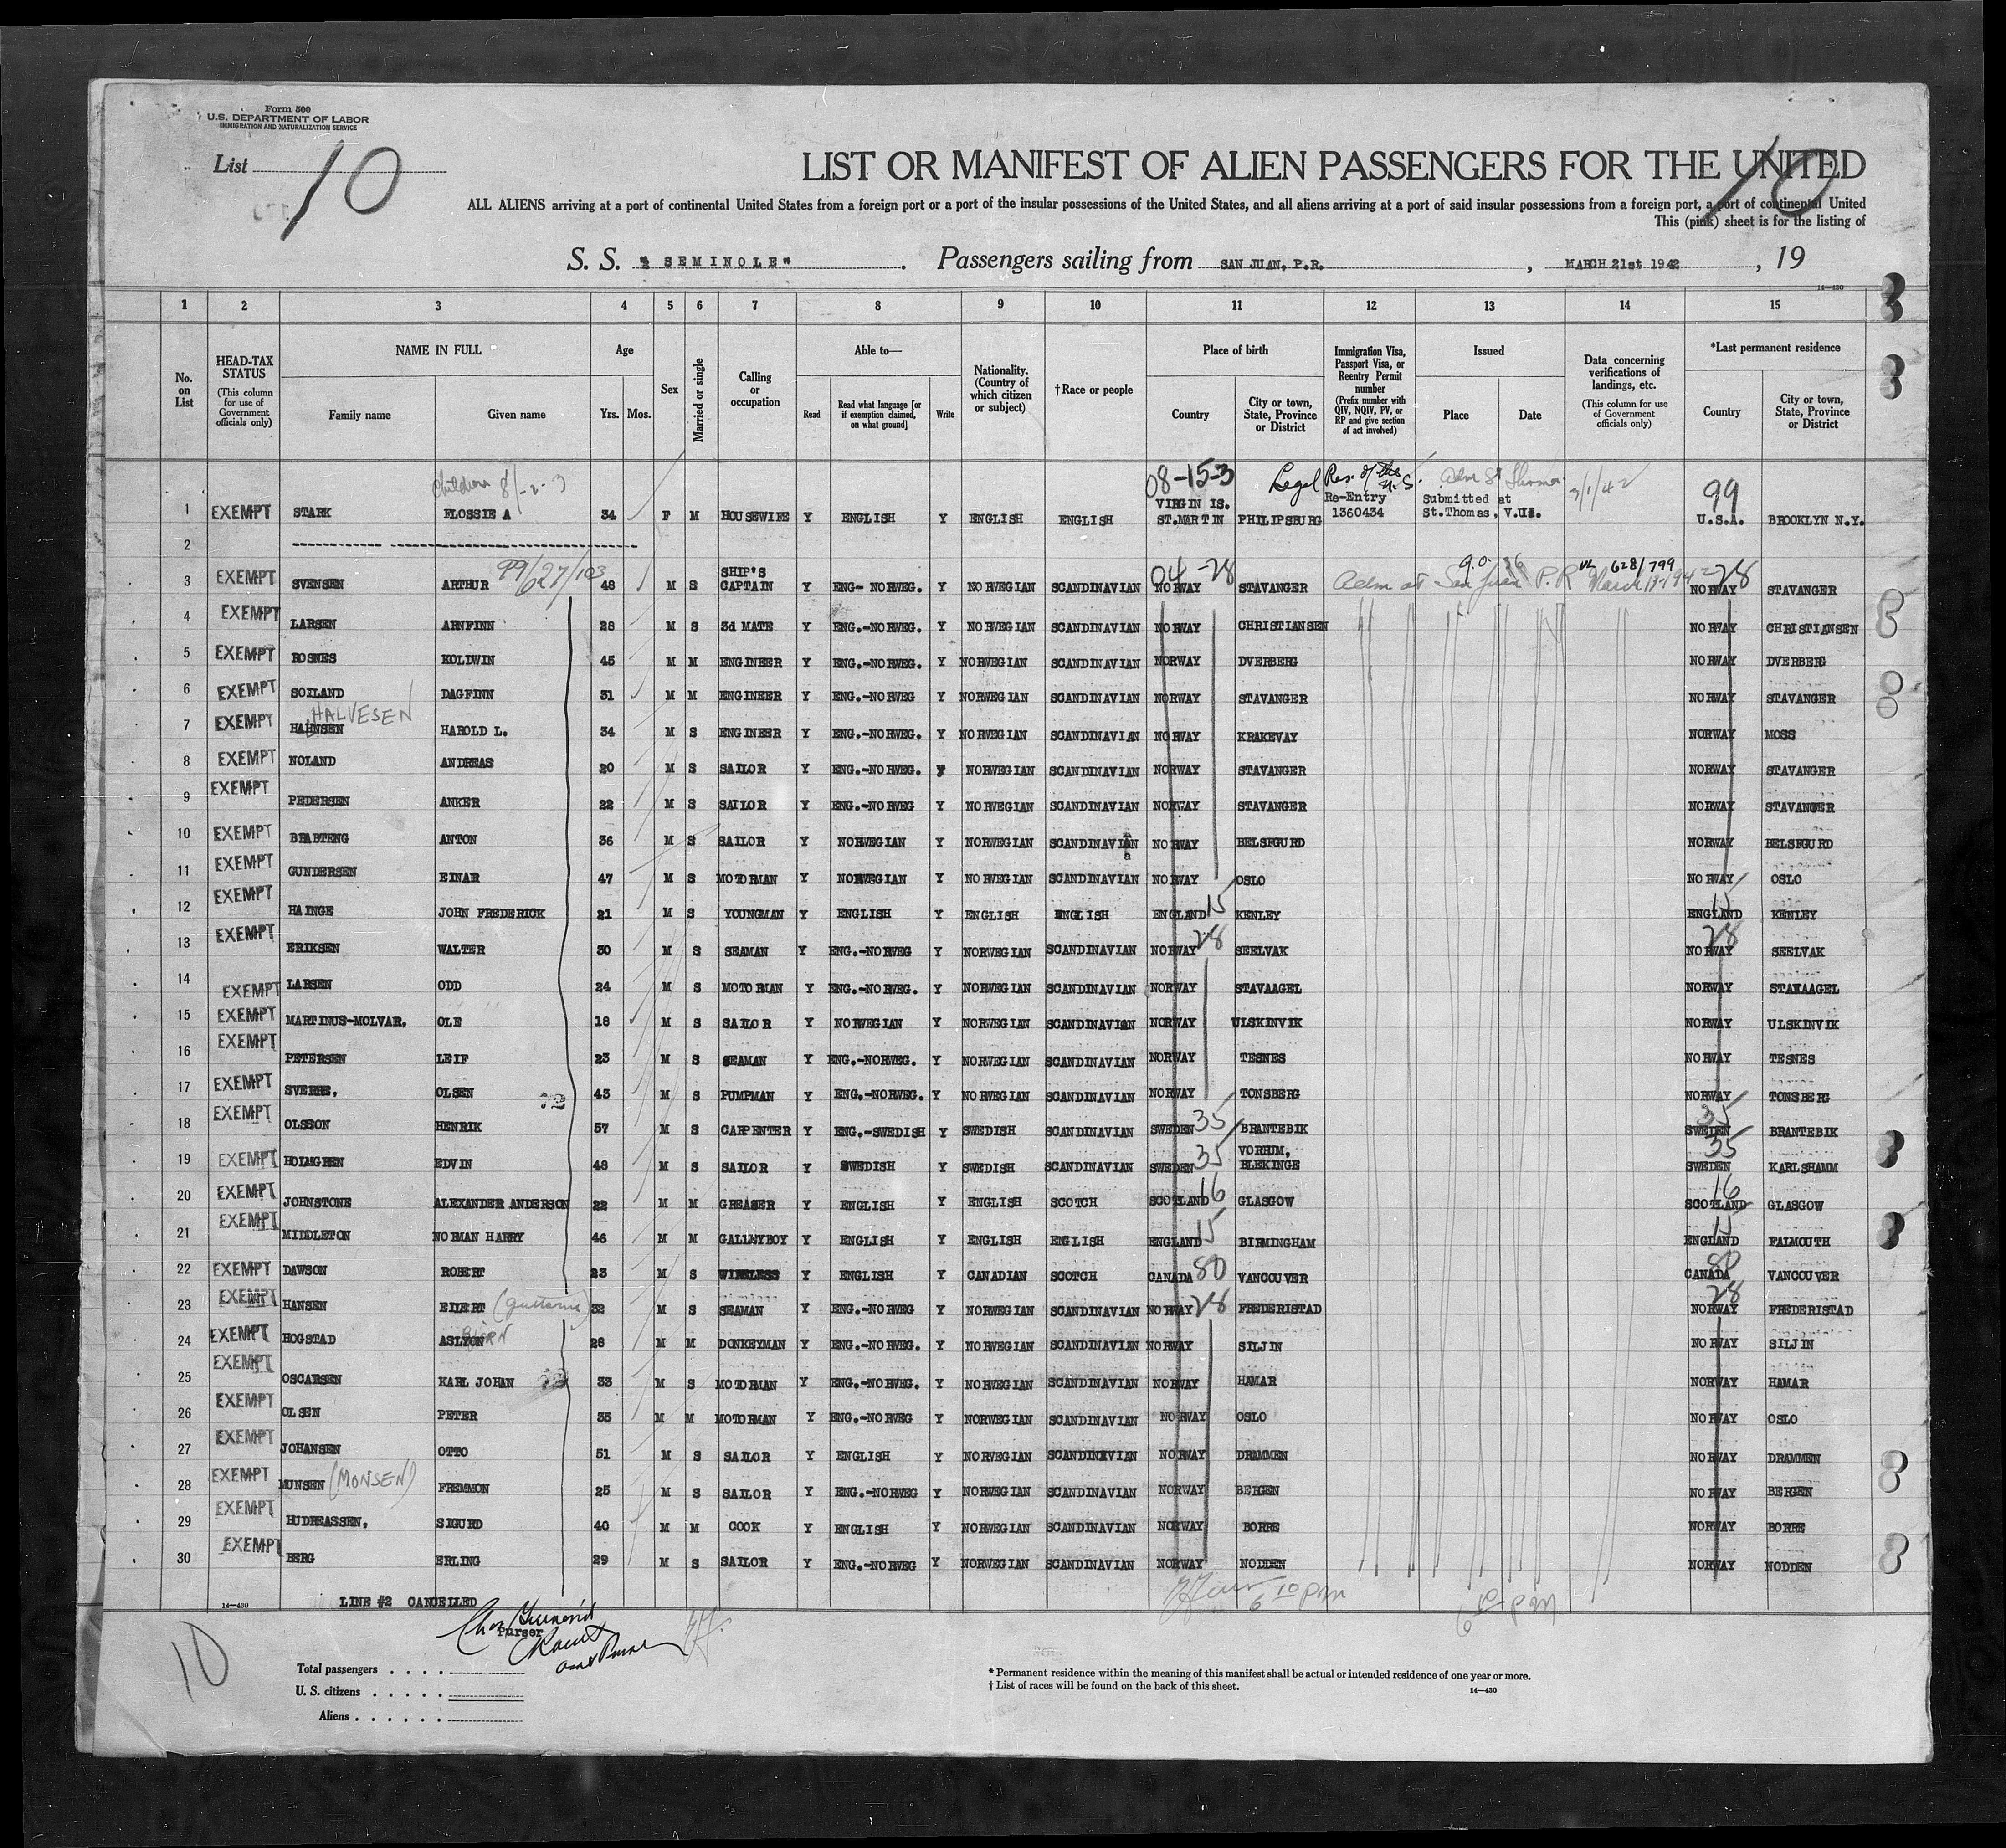 Form 500
U.S. DEPARTMENT OF LABOR
IMMIGRATION AND NATURALIZATION SERVICE
List 10
10
LIST OR MANIFEST OF ALIEN PASSENGERS FOR THE UNITED
ALL ALIENS arriving at a port of continental United States from a foreign port or a port of the insular possessions of the United States, and all aliens arriving at a port of said insular possessions from a foreign port, a port of continental United
This (pink) sheet is for the listing of
S. S. "SEMINOLE" Passengers sailing from SAN JUAN, P.R., MARCH 21st 1942, 19
14—430
1 2 3 4 5 6 7 8 9 10 11 12 13 14 15
No. on List
HEAD-TAX STATUS (This column for use of Government officials only)
NAME IN FULL Family name Given name
Age Yrs. Mos.
Sex
Married or single
Calling or occupation
Able to— Read Read what language [or if exemption claimed, on what ground] Write
Nationality. (Country of which citizen or subject)
†Race or people
Place of birth Country City or town, State, Province or District
Immigration Visa, Passport Visa, or Reentry Permit number (Prefix number with QIV, NQIV, PV, or RP and give section of act involved)
Issued Place Date
Data concerning verifications of landings, etc. (This column for use of Government officials only)
*Last permanent residence Country City or town, State, Province or District
Children 8/-2-3 08-153 Legal Res. of the U.S. Adm St Thomas 3/1/42 99
1 EXEMPT STARK FLOSSIE A 34 F M HOUSEWIFE Y ENGLISH Y ENGLISH ENGLISH VIRGIN IS. ST.MARTIN PHILIPSBURG Re-Entry 1360434 Submitted at St.Thomas, V.I. U.S.A. BROOKLYN N.Y.
2
99/627/103 04-28 628/799 28
3 EXEMPT SVENSEN ARTHUR 48 M S SHIP'S CAPTAIN Y ENG- NORWEG. Y NORWEGIAN SCANDINAVIAN NORWAY STAVANGER Adm at San Juan P.R. NORWAY STAVANGER
4 EXEMPT LARSEN ARNFINN 28 M S 3d MATE Y ENG.-NORWEG. Y NORWEGIAN SCANDINAVIAN NORWAY CHRISTIANSEN NORWAY CHRISTIANSEN
5 EXEMPT ROSNES KOLDWIN 45 M M ENGINEER Y ENG.-NORWEG. Y NORVEGIAN SCANDINAVIAN NORWAY DVERBERG NORWAY DVERBERG
6 EXEMPT SOILAND DAGFINN 31 M M ENGINEER Y ENG.-NORWEG Y NORWEGIAN SCANDINAVIAN NORWAY STAVANGER NORWAY STAVANGER
HALVESEN
7 EXEMPT HAHNSEN HAROLD L. 34 M S ENGINEER Y ENG.-NORWEG. Y NORVEGIAN SCANDINAVIAN NORWAY KRAKEVAY NORWAY MOSS
8 EXEMPT NOLAND ANDREAS 20 M S SAILOR Y ENG.-NORWEG. Y NORVEGIAN SCANDINAVIAN NORWAY STAVANGER NORWAY STAVANGER
9 EXEMPT PEDERSEN ANKER 22 M S SAILOR Y ENG.-NORWEG Y NORVEGIAN SCANDINAVIAN NORWAY STAVANGER NORWAY STAVANGER
10 EXEMPT BRABTENG ANTON 36 M S SAILOR Y NORWEGIAN Y NORWEGIAN SCANDINAVIAN NORWAY BELSFGURD NORWAY BELSFGURD
11 EXEMPT GUNDERSEN EINAR 47 M S MOTORMAN Y NORWEGIAN Y NORWEGIAN SCANDINAVIAN NORWAY OSLO NORWAY OSLO
12 EXEMPT HAINGE JOHN FREDERICK 21 M S YOUNGMAN Y ENGLISH Y ENGLISH ENGLISH ENGLAND 15 KENLEY ENGLAND 15 KENLEY
13 EXEMPT ERIKSEN WALTER 30 M S SEAMAN Y ENG.-NORWEG Y NORVEGIAN SCANDINAVIAN NORWAY 28 SEELVAK NORWAY 28 SEELVAK
14 EXEMPT LARSEN ODD 24 M S MOTORMAN Y ENG.-NORWEG. Y NORVEGIAN SCANDINAVIAN NORWAY STAVAAGEL NORWAY STAVAAGEL
15 EXEMPT MARTINUS-MOLVAR, OLE 18 M S SAILOR Y NORWEGIAN Y NORVEGIAN SCANDINAVIAN NORWAY ULSKINVIK NORWAY ULSKINVIK
16 EXEMPT PETERSEN LEIF 23 M S SEAMAN Y ENG.-NORWEG. Y NORVEGIAN SCANDINAVIAN NORWAY TESNES NORWAY TESNES
17 EXEMPT SVERRE, OLSEN 72 43 M S PUMPMAN Y ENG.-NORWEG. Y NORVEGIAN SCANDINAVIAN NORWAY TONSBERG NORWAY TONSBERG
18 EXEMPT OLSSON HENRIK 57 M S CARPENTER Y ENG.-SWEDISH Y SWEDISH SCANDINAVIAN SWEDEN 35 BRANTEBIK SWEDEN 35 BRANTEBIK
19 EXEMPT HOLMGREN EDVIN 48 M S SAILOR Y SWEDISH Y SWEDISH SCANDINAVIAN SWEDEN 35 VORHUM, BLEKINGE SWEDEN 35 KARLSHAMM
20 EXEMPT JOHNSTONE ALEXANDER ANDERSON 22 M M GREASER Y ENGLISH Y ENGLISH SCOTCH SCOTLAND 16 GLASGOW SCOTLAND 16 GLASGOW
21 EXEMPT MIDDLETON NORMAN HARRY 46 M M GALLEYBOY Y ENGLISH Y ENGLISH ENGLISH ENGLAND 15 BIRMINGHAM ENGLAND 15 FALMOUTH
22 EXEMPT DAWSON ROBERT 23 M S WIRELESS Y ENGLISH Y CANADIAN SCOTCH CANADA 80 VANCOUVER CANADA 80 VANCOUVER
23 EXEMPT HANSEN EILERT 32 M S SEAMAN Y ENG.-NORWEG Y NORVEGIAN SCANDINAVIAN NORWAY 28 FREDERISTAD NORWAY 28 FREDERISTAD
24 EXEMPT HOGSTAD ASLYON 28 M M DONKEYMAN Y ENG.-NORWEG. Y NORVEGIAN SCANDINAVIAN NORWAY SILJIN NORWAY SILJIN
25 EXEMPT OSCARSEN KARL JOHAN 33 M S MOTORMAN Y ENG.-NORWEG. Y NORVEGIAN SCANDINAVIAN NORWAY HAMAR NORWAY HAMAR
26 EXEMPT OLSEN PETER 35 M M MOTORMAN Y ENG.-NORWEG Y NORWEGIAN SCANDINAVIAN NORWAY OSLO NORWAY OSLO
27 EXEMPT JOHANSEN OTTO 51 M S SAILOR Y ENGLISH Y NORVEGIAN SCANDINAVIAN NORWAY DRAMMEN NORWAY DRAMMEN
28 EXEMPT MUNSEN (MONSEN) FREMMON 25 M S SAILOR Y ENG.-NORWEG Y NORVEGIAN SCANDINAVIAN NORWAY BERGEN NORWAY BERGEN
29 EXEMPT HUDREASSEN, SIGURD 40 M M COOK Y ENGLISH Y NORVEGIAN SCANDINAVIAN NORWAY BORRE NORWAY BORRE
30 EXEMPT BERG ERLING 29 M S SAILOR Y ENG.-NORWEG Y NORVEGIAN SCANDINAVIAN NORWAY NODDEN NORWAY NODDEN
14—430 LINE #2 CANCELLED
6 10 pm
Purser
10
Total passengers
U. S. citizens
Aliens
* Permanent residence within the meaning of this manifest shall be actual or intended residence of one year or more.
† List of races will be found on the back of this sheet. 14—430